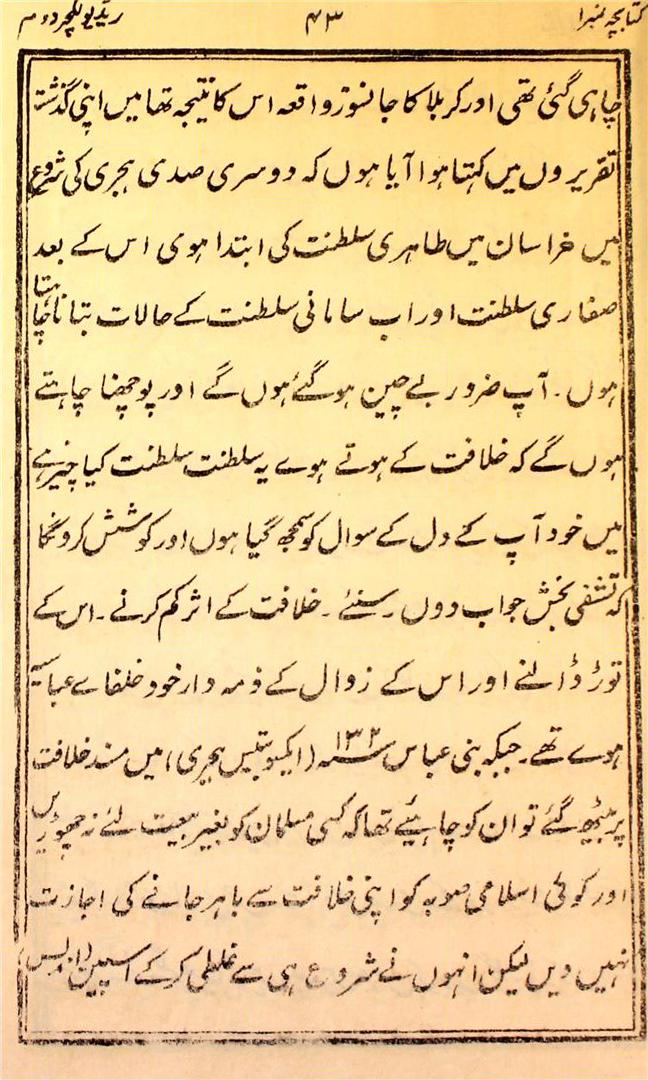 کتابچہ نمبرا ۴۳ ریڈیو لکچر دوم
چاہی گئی تھی اور کربلا کا جانسوز واقعہ اس کا نتیجہ تھا میں اپنی گذشتہ
تقریروں میں کہتا ہوا آیا ہوں کہ دوسری صدی ہجری کی شروع
میں خراسان میں طاہری سلطنت کی ابتدا ہوی اس کے بعد
صفاری سلطنت اور اب سامانی سلطنت کے حالات بتانا چاہتا
ہوں۔ آپ ضرور بے چین ہوگئے ہوں گے اور پوچھنا چاہتے
ہوں گے کہ خلافت کے ہوتے ہوے یہ سلطنت سلطنت کیا چیز ہے
میں خود آپ کے دل کے سوال کو سمجھ گیا ہوں اور کوشش کرونگا
کہ تشفی بخش جواب دوں۔ سنئے۔ خلافت کے اثر کم کرنے۔ اس کے
توڑ ڈالنے اور اس کے زوال کے ذمہ دار خود خلفاے عباسیہ
ہوے تھے۔ جبکہ بنی عباس ۱۳۲سنہ (ایکسوبتیس ہجری) میں مسند خلافت
پر بیٹھ گئے تو ان کو چاہیئے تھا کہ کسی مسلمان کو بغیر بیعت لئے نہ چھوڑیں
اور کوئی اسلامی صوبہ کو اپنی خلافت سے باہر جانے کی اجازت
نہیں دیں لیکن انہوں نے شروع ہی سے غلطی کرکے اسپین (اندلس)